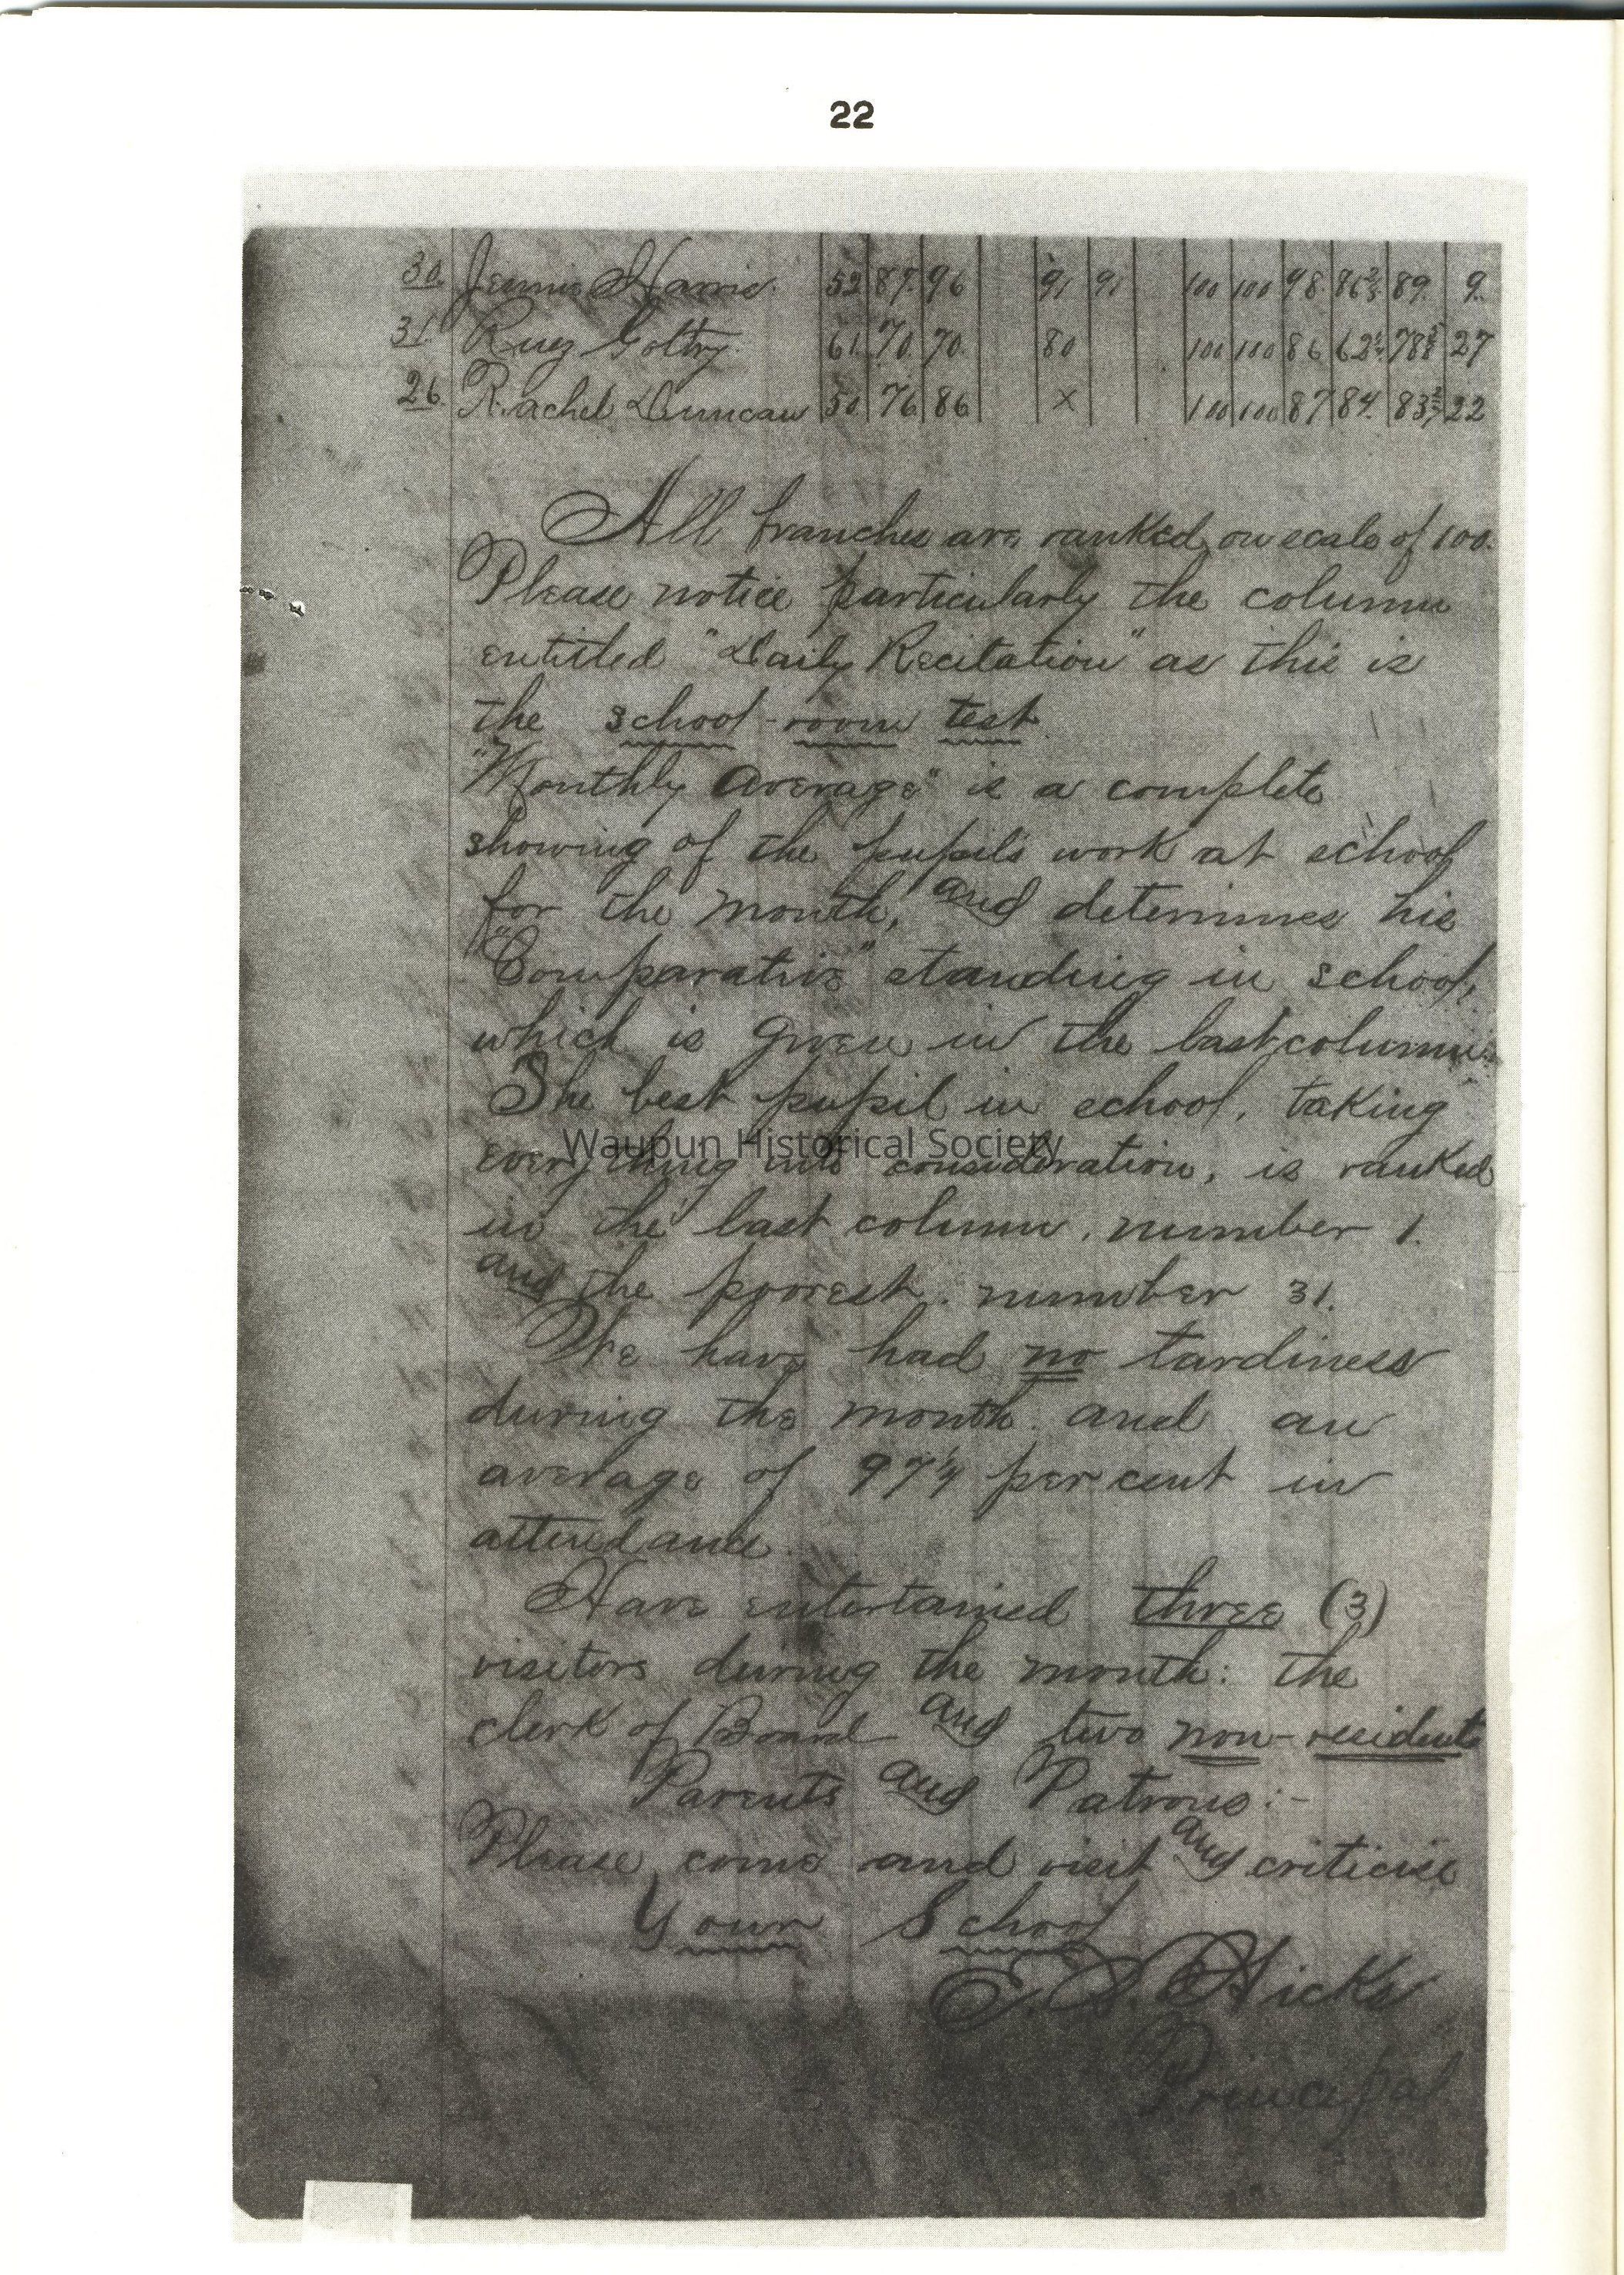 22
30. Jennie Harris. 52 87. 96 91 91 100 100 98 86⅔ 89. 9.
31. Golty. 61. 70. 70. 80 100 100 86 62¼ 78⅝ 27
26. Rachel Duncan 50 76 86 X 100 100 87 84. 83 22
All branches are ranked on scale of 100.
Please notice particularly the column
entitled "Daily Recitation" as this is
the school-room test.
"Monthly Average" is a complete
showing of the pupil's work at school
for the month, and determines his
"Comparative" standing in school,
which is given in the last column.
The best pupil in school, taking
everything into consideration, is ranked
in the last column, number 1.
and the poorest, number 31.
We have had no tardiness
during the month and an
average of 97¼ per cent in
attendance.
Have entertained three (3)
visitors during the month: the
clerk of Board and two non-residents
Parents and Patrons:-
Please come and visit and criticise
Your School
E. D. Hicks
Principal
Waupun Historical Society